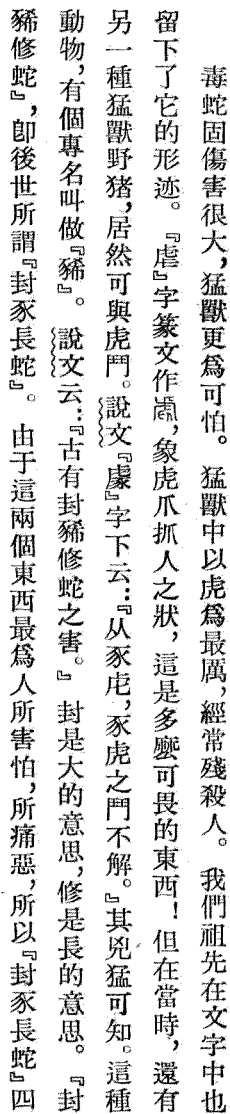 毒蛇固傷害很大，猛獸更爲可怕。 猛獸中以虎爲最厲，經常殘殺人。 我們祖先在文字中也
留下了它的形迹。『虐』字篆文作，象虎爪抓人之狀，這是多麼可畏的東西！ 但在當時，還有
另一種猛獸野猪，居然可與虎鬥。說文『豦』字下云：『从豕虍，豕虎之鬥不解。』其兇猛可知。這種
動物，有個專名叫做『豨』。 說文云：『古有封豨修蛇之害。』 封是大的意思，修是長的意思。『封
豨修蛇』，卽後世所謂『封豕長蛇』。 由于這兩個東西最爲人所害怕，所痛惡，所以『封豕長蛇』四